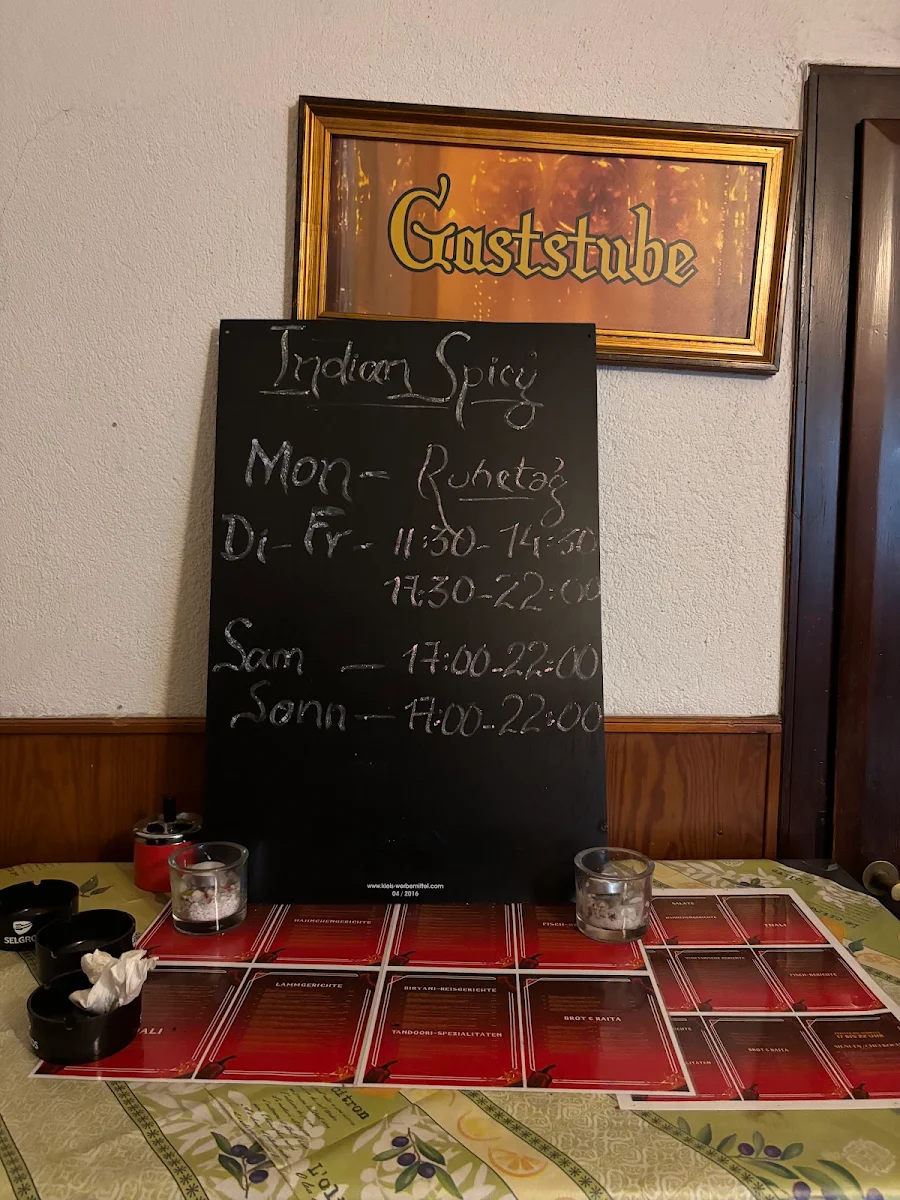 Gaststube
Indian Spicy
Mon - Ruhetag
Di - Fr - 11:30 - 14:30
17:30 - 22:00
Sam — 17:00 - 22:00
Sonn — 17:00 - 22:00
www.kleis-werbemittel.com
04 / 2016
SELGRO
HÄHNCHENGERICHTE
FISCH-
SALATE
THALI
FISCH-GERICHTE
LAMMGERICHTE
BIRYANI-REISGERICHTE
TANDOORI-SPEZIALITÄTEN
BROT & RAITA
BROT & RAITA